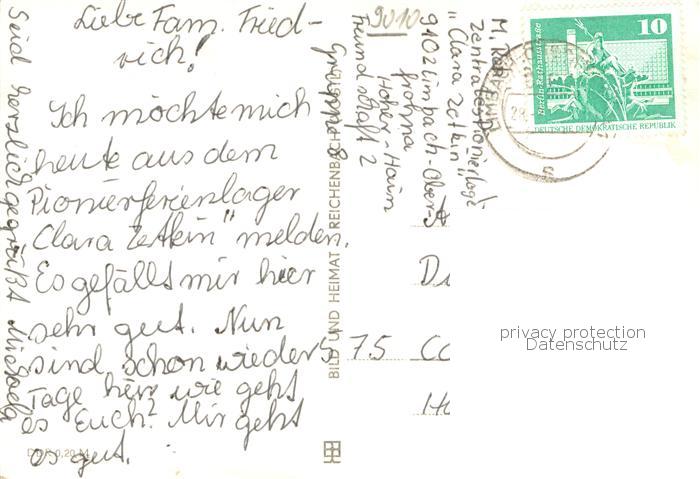 Liebe Fam. Fried-
rich!
Ich möchte mich
heute aus dem
Pionierferienlager
"Clara Zetkin" melden.
Es gefällt mir hier
sehr gut. Nun
sind schon wieder 5
Tage hier wie geht
es Euch? Mir geht
es gut.
Seid herzlich gegrüßt Michaela
DDR 0,20 M
BILD UND HEIMAT REICHENBACH
M.
Zentrales Pionierlage
"Clara Zetkin"
9102 Limbach-Ober-
frohna
Hoher-Hain
Freundschaft 2
Gruppe 8
9010
75
Berlin-Rathausstraße
10
DEUTSCHE DEMOKRATISCHE REPUBLIK
privacy protection
Datenschutz